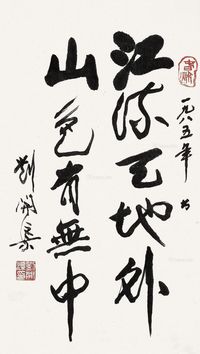 江流天地外
山色有無中
一九八五年書
劉開渠